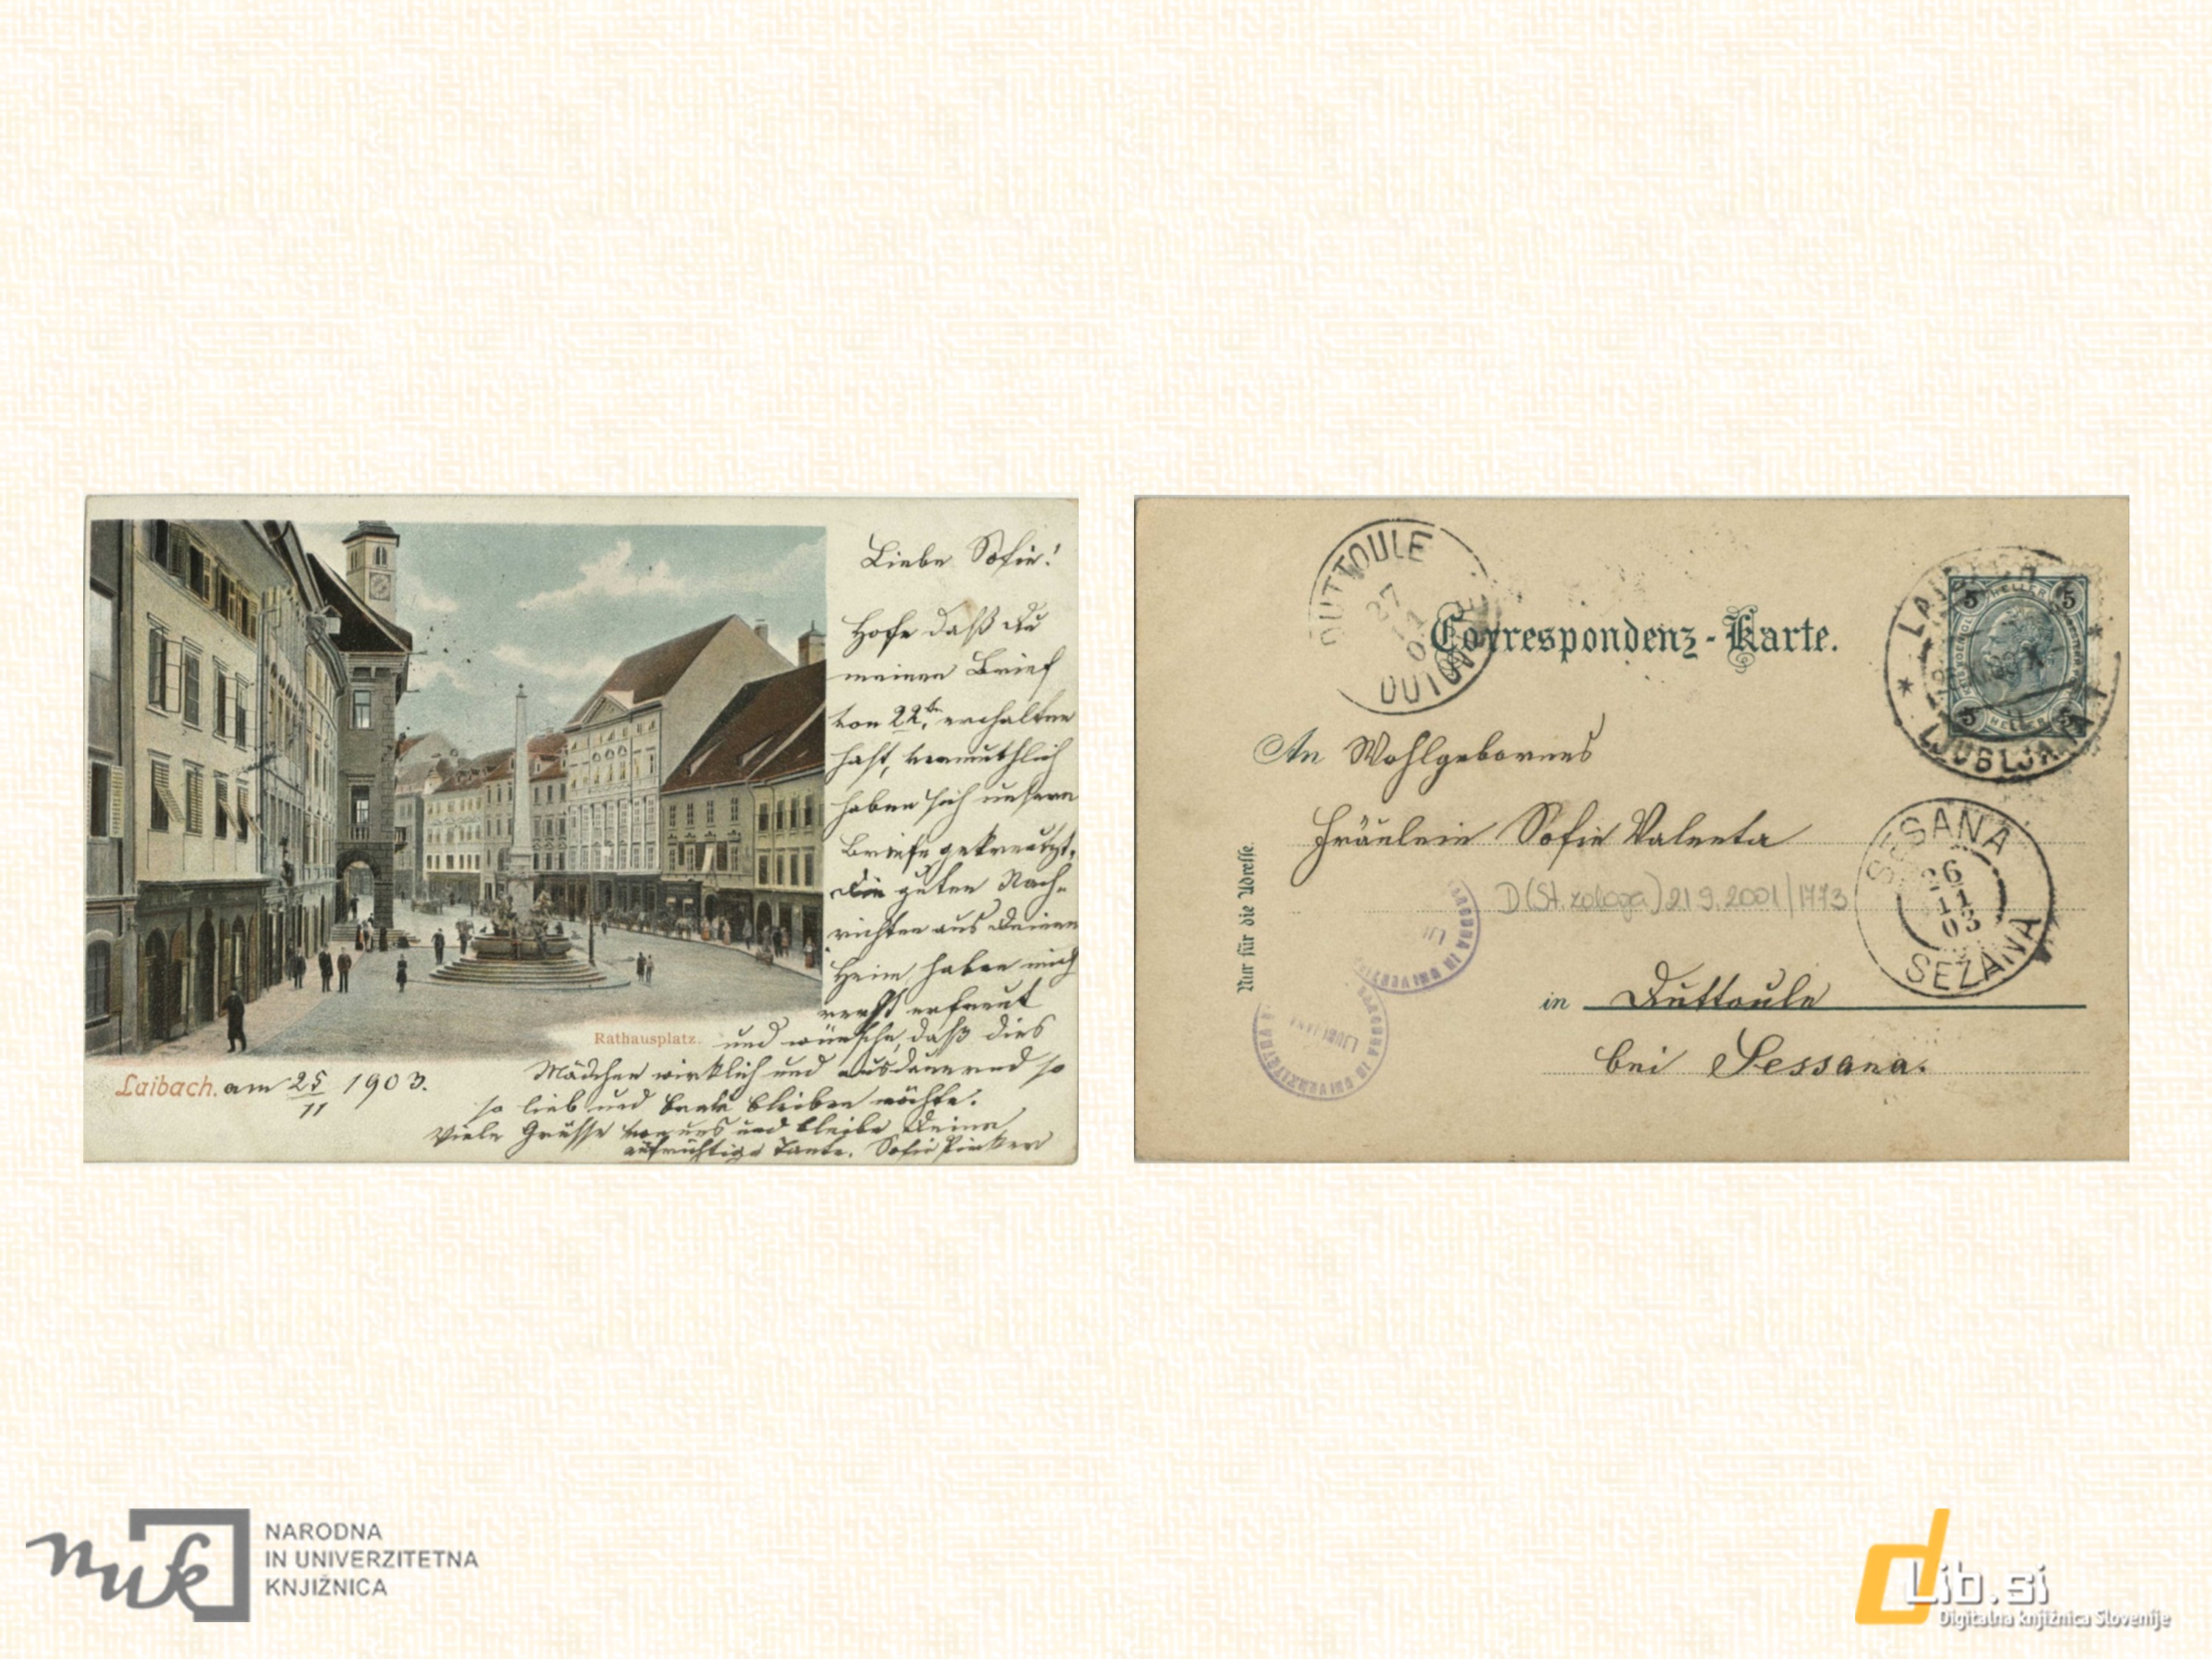 Liebe Sofie!
Hofe daß du
meinen Brief
von 22ten erhalten
hast, vermuthlich
haben sich unsere
Briefe gekreutzt,
die guten Nach-
richten aus deinem
Heim, haben mich
erfreut
Rathausplatz. und wünsche, daß dies
Mädchen wirklich und ausdauernd so
Laibach. am 25/11 1903.
so lieb und bleiben möchte.
Viele Grüsse von uns und bleibe deine
aufrichtige Tante. Sofie
DUTTOULE
27
11
LAIBACH
5 HELLER 5
Correspondenz-Karte.
LJUBLJANA 1
An Wohlgebornes
Fräulein Sofie Valenta
SESANA
26
11
03
SEZANA
Nur für die Adresse.
D(St. zaloga) 21 9. 2001/1773
NARODNA IN UNIVERZITETNA
LJUBLJANA
in Duttoule
bei Sessana.
nuk
NARODNA
IN UNIVERZITETNA
KNJIŽNICA
dLib.si
Digitalna knjižnica Slovenije